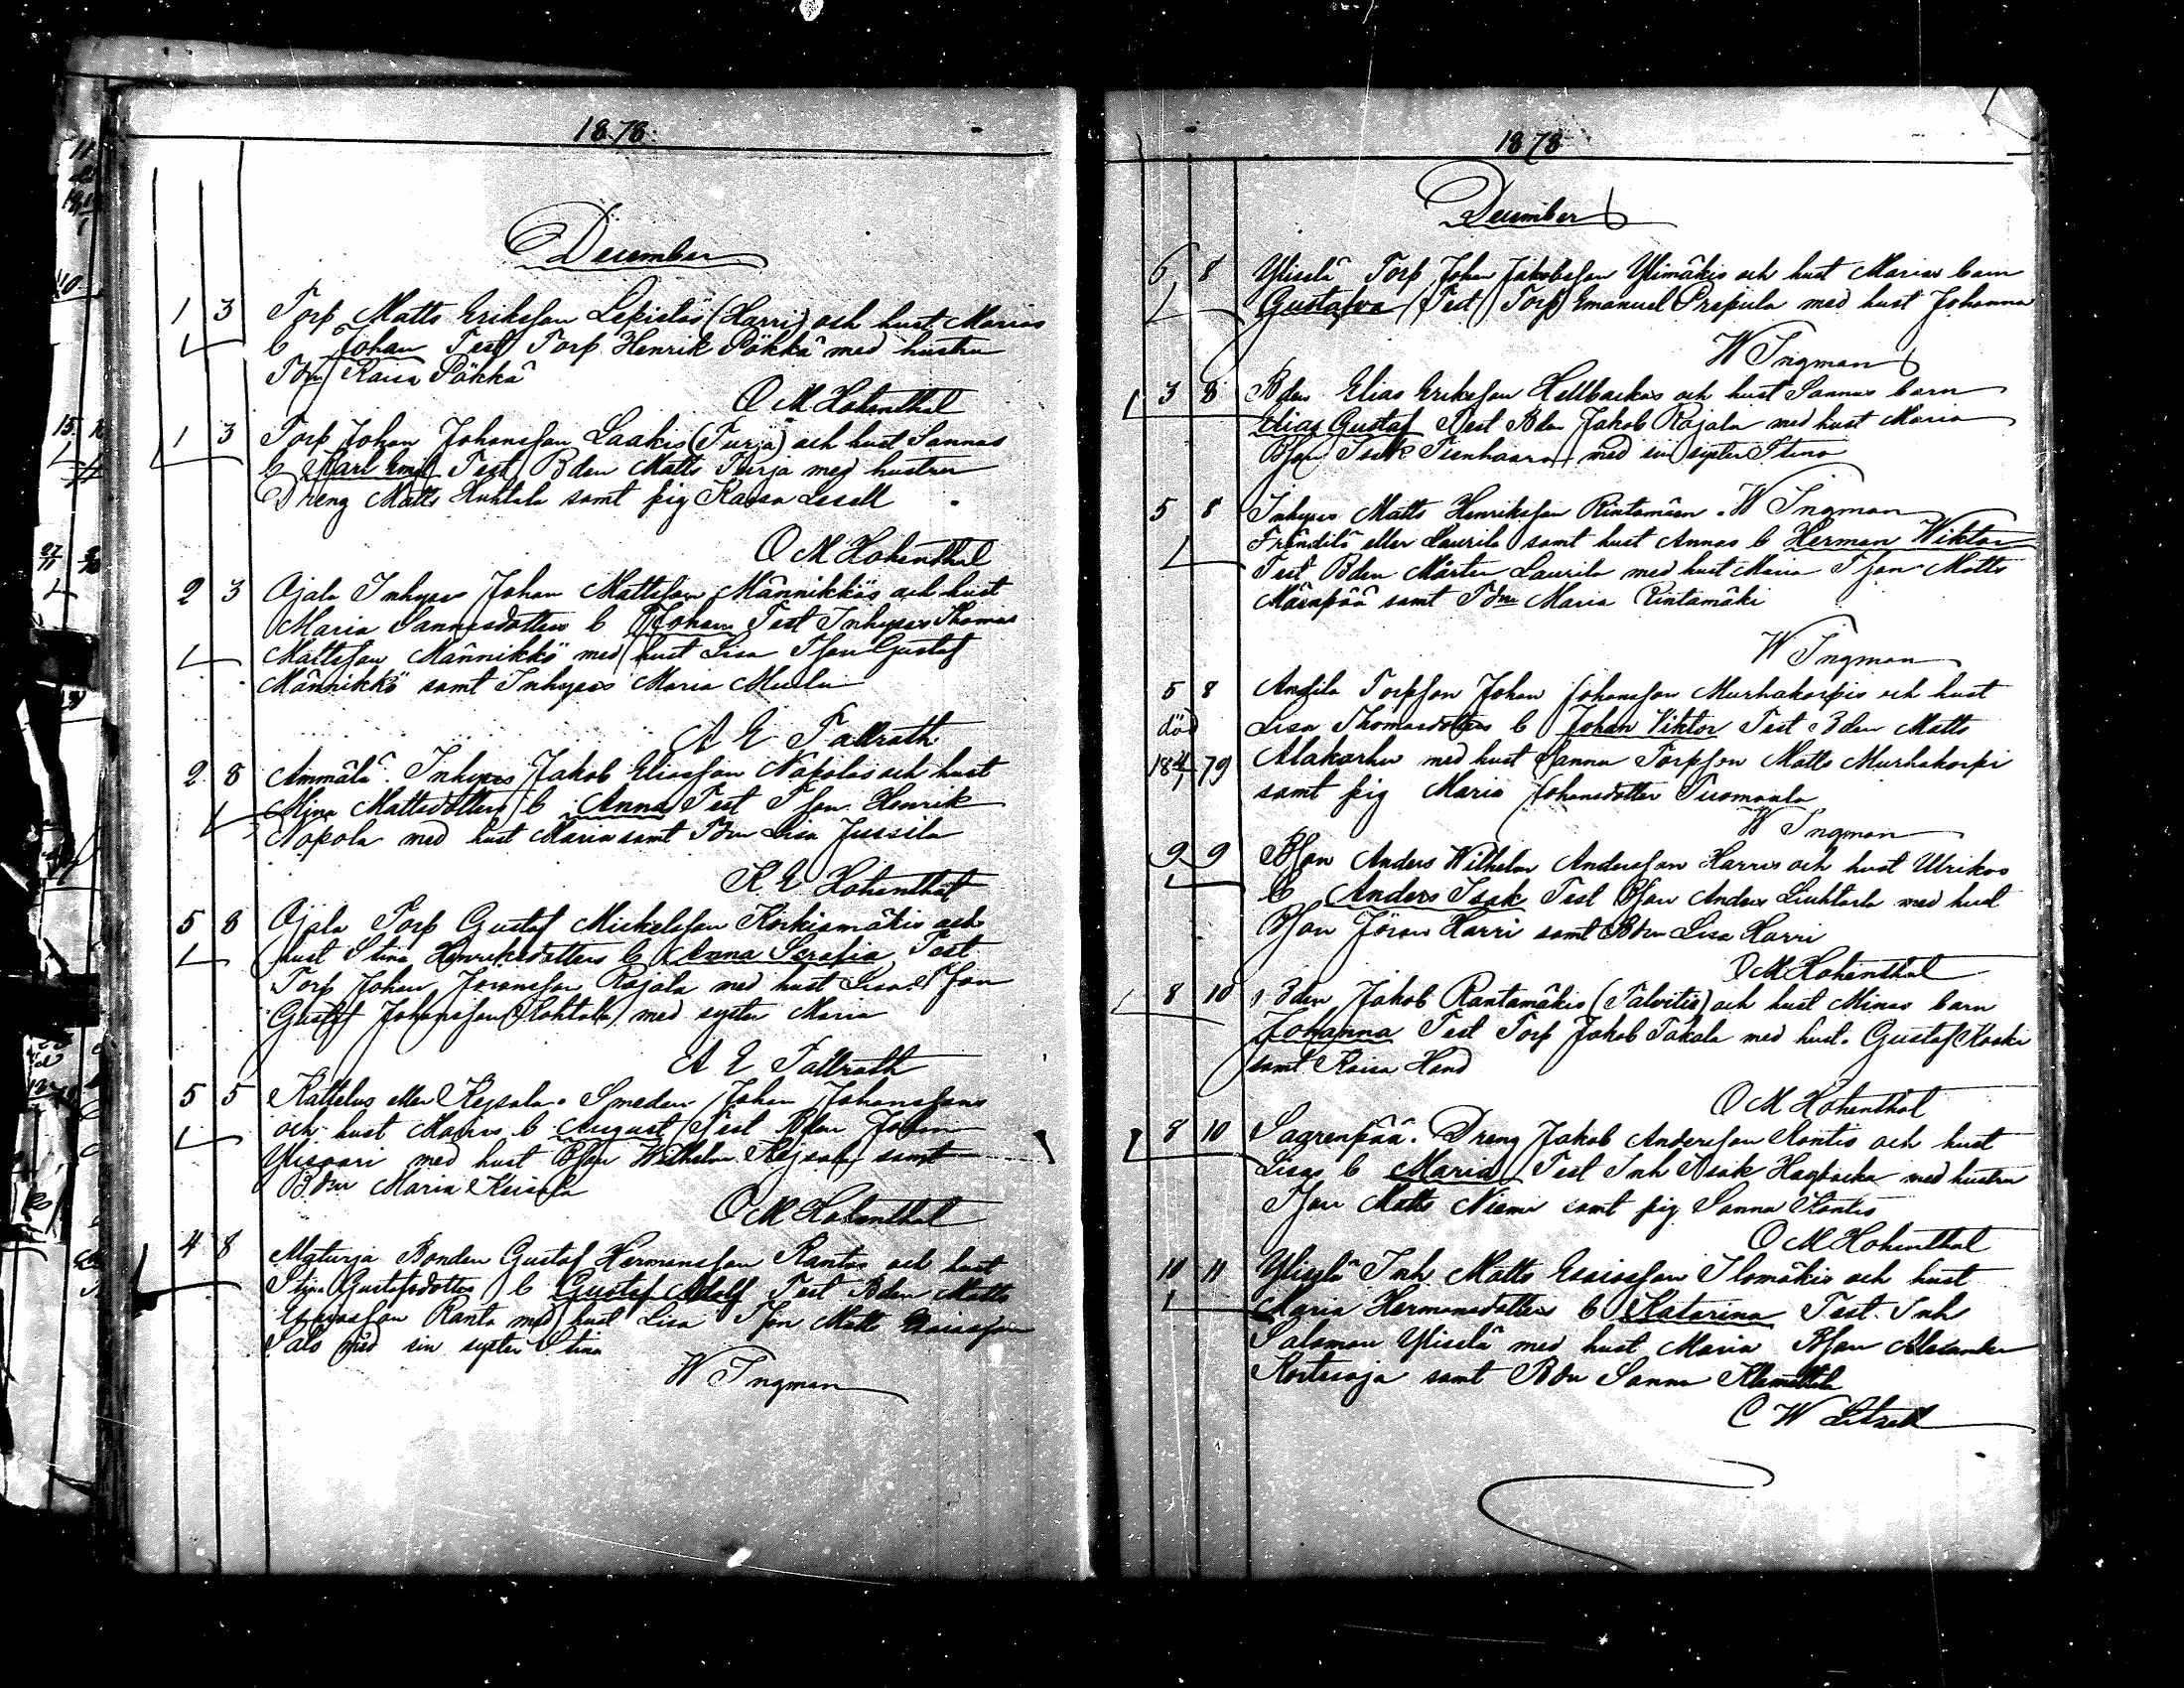 1878.
December
1 3 Torp Matts Eriksson Lepistös (Harri) och hust Marias
b Johan Test Torp Henrik Pökkä med hustru
Tdr Kaisa Pökkä
O M Hohenthal
1 3 Torp Johan Johansson Laakis (Turja) och hust Sannas
b Karl Emil Test Bden Matts Turja med hustru
Dreng Matts Huhtala samt pig Kaisa Lesell
O M Hohenthal
2 3 Ojala Inhyses Johan Mattsson Männikkös och hust
Maria Sannasdotters b Johan Test Inhyses Thomas
Mattsson Männikkö med hust Lisa Tson Gustaf
Männikkö samt Inhyses Maria
A E Fallrath
2 8 Ammälä. Inhyses Jakob Eliasson Napolas och hust
Mina Mattsdotters b Anna Test Tson Henrik
Napola med hust Maria samt Tdr Lisa Jussila
K E Hohenthal
5 8 Ojala Torp Gustaf Mickelsson Korkiamäkis och
hust Stina Henriksdotters b Anna Serafia Test
Torp Johan Rajala med hust Lisa Tson
Gustaf Johansson med syster Maria
A E Fallrath
5 5 Kattelus eller Kejsala. Smeden Johan Johanssons
och hust Marias b August Test Bden Johan
med hust Bson Wilhelm Kejsala samt
Bdr Maria Keisala
O M Hohenthal
4 8 Alaturja Bonden Gustaf Hermansson Rantas och hust
Stina Gustafsdotters b Gustaf Adolf Test Bden Matts
Ranta med hust Lisa Tson Matts Esaiasson
Salo med sin syster Stina
W Ingman
1878
December
6 8 Yliselä Torp Johan Jakobsson Ylimäkis och hust Marias barn
Gustafva Test Torp Emanuel Prepula med hust Johanna
W Ingman
3 8 Bden Elias Eriksson Hellbackas och hust Sannas barn
Elias Gustaf Test Bden Jakob Rajala med hust Maria
Bson Isak Tienhaara med sin syster Stina
W Ingman
5 8 Inhyses Matts Henriksson Rintamäen.
Fränditä eller Laurila samt hust Annas b Herman Wiktor
Test Bden Mårten Laurila med hust Maria Tson Matts
Mäenpää samt Tdr Maria Rintamäki
W Ingman
5 8 Torpson Johan Johansson Murhakorpis och hust
död Lisa Thomasdotters b Johan Viktor Test Bden Matts
79 Alakarhu med hust Sanna Torpson Matts Murhakorpi
samt pig Maria Johansdotter Tuomaala
W Ingman
9 9 Bson Anders Wilhelm Andersson Harris och hust Ulrikas
b Anders Isak Test Bson Anders Luhtala med hust
Bson Jöran Harri samt Bdr Lisa Harri
O M Hohenthal
8 10 Bden Jakob Rantamäkis (Talvitie) och hust Minas barn
Johanna Test Torp Jakob Takala med hust. Gustaf Koski
samt Kaisa Hand
O M Hohenthal
8 10 Sagrenpää. Dreng Jakob Andersson Kontis och hust
Lisas b Maria Test Inh Isak Hagbacka med hustru
Tson Matts Niemi samt pig Sanna Kontis
O M Hohenthal
10 11 Yliselä Inh Matts Esaiasson Ilomäkis och hust
Maria Hermansdotters b Katarina Test Inh
Salomon Yliselä med hust Maria Bson Alexander
samt Bdr Sanna Klemettilä
C W Litzell